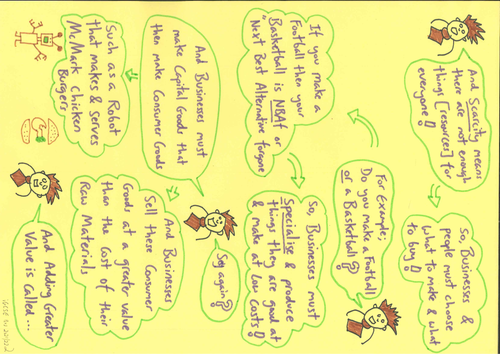 And Scarcity means
there are not enough
things [resources] for
everyone!
So, Businesses &
people must choose
what to make & what
to buy!
For Example;
Do you make a Football
or a Basketball?
If you make a
Football then your
Basketball is NBAf or
"Next Best Alternative forgone"
So, Businesses must
Specialise & produce
things they are good at
& make at low Costs!
Say again?
And Businesses must
make Capital Goods that
then make Consumer Goods
Such as a Robot
that makes & serves
McMark chicken
Burgers
And Businesses
Sell these Consumer
Goods at a greater value
than the Cost of their
Raw Materials
And Adding Greater
Value is Called...